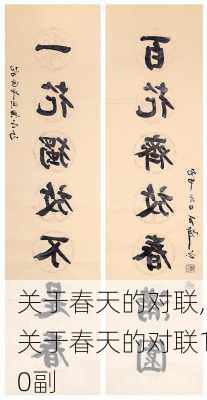 一花獨放不是春
百花齊放春滿園
关于春天的对联,
关于春天的对联1
0副